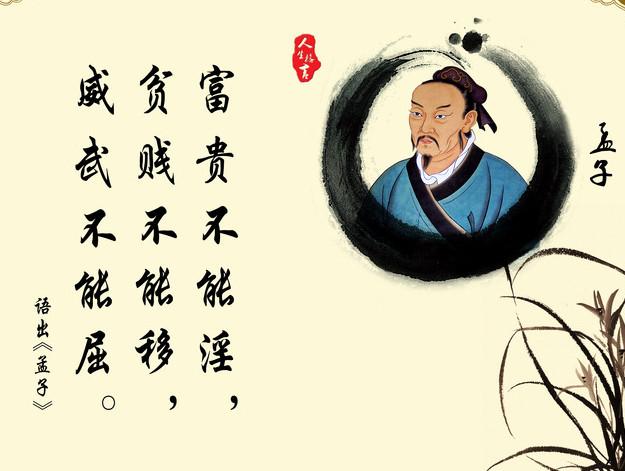 孟子
富贵不能淫，
贫贱不能移，
威武不能屈。
语出《孟子》